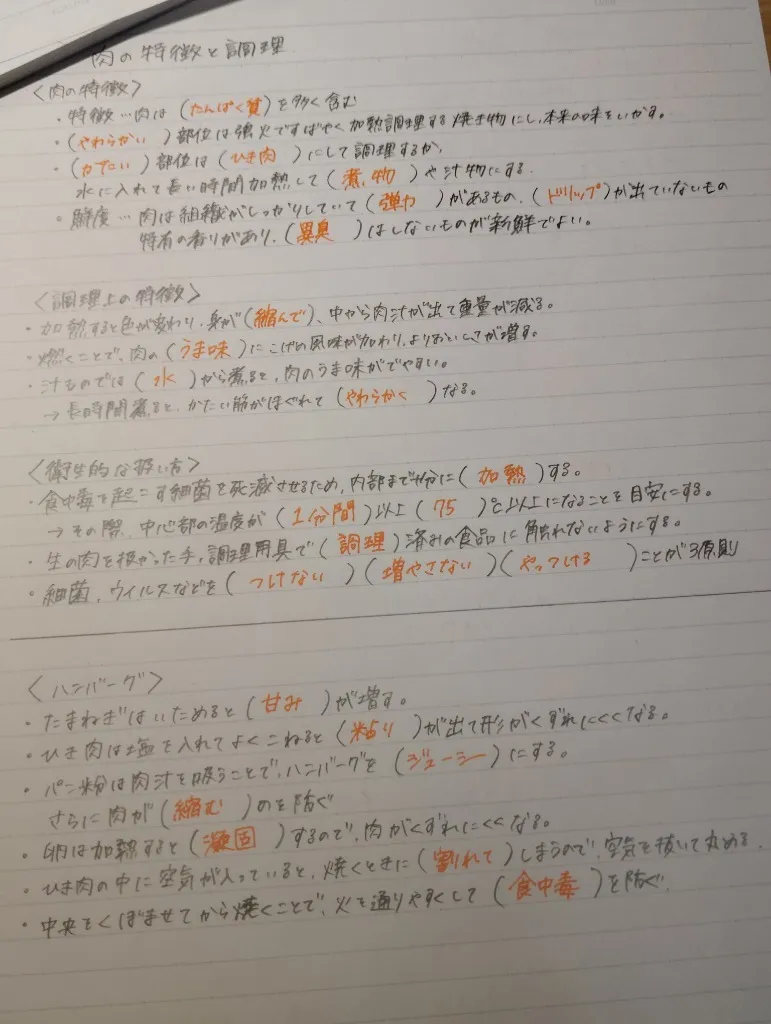 肉の特徴と調理
〈肉の特徴〉
・特徴…肉は(たんぱく質)を多く含む
・(やわらかい)部位は強火ですばやく加熱調理する焼き物にし、本来の味をいかす。
・(かたい)部位は(ひき肉)にして調理するか、
水に入れて長い時間加熱して(煮物)や汁物にする.
・鮮度…肉は組織がしっかりしていて(弾力)があるもの、(ドリップ)が出ていないもの
特有の香りがあり、(異臭)はしないものが新鮮でよい。
〈調理上の特徴〉
・加熱すると色が変わり、身が(縮んで)、中から肉汁が出て重量が減る。
・焼くことで、肉の(うま味)にこげの風味が加わり、よりおいしさが増す。
・汁ものでは(水)から煮ると、肉のうま味がでやすい。
→長時間煮ると、かたい筋がほぐれて(やわらかく)なる。
〈衛生的な扱い方〉
・食中毒を起こす細菌を死滅させるため、内部まで十分に(加熱)する。
→その際、中心部の温度が(1分間)以上(75)℃以上になることを目安にする。
・生の肉を扱かった手、調理用具で(調理)済みの食品に触れないようにする。
・細菌、ウイルスなどを(つけない)(増やさない)(やっつける)ことが3原則
〈ハンバーグ〉
・たまねぎはいためると(甘み)が増す。
・ひき肉は塩を入れてよくこねると(粘り)が出て形がくずれにくくなる。
・パン粉は肉汁を吸うことで、ハンバーグを(ジューシー)にする。
さらに肉が(縮む)のを防ぐ
・卵は加熱すると(凝固)するので、肉がくずれにくくなる。
・ひき肉の中に空気が入っていると、焼くときに(割れて)しまうので、空気を抜いて丸める.
・中央をくぼませてから焼くことで、火を通りやすくして(食中毒)を防ぐ.